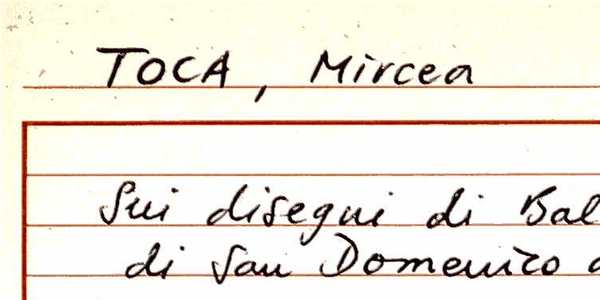 TOCA, Mircea
Sui disegni di Bal
di San Domenico a